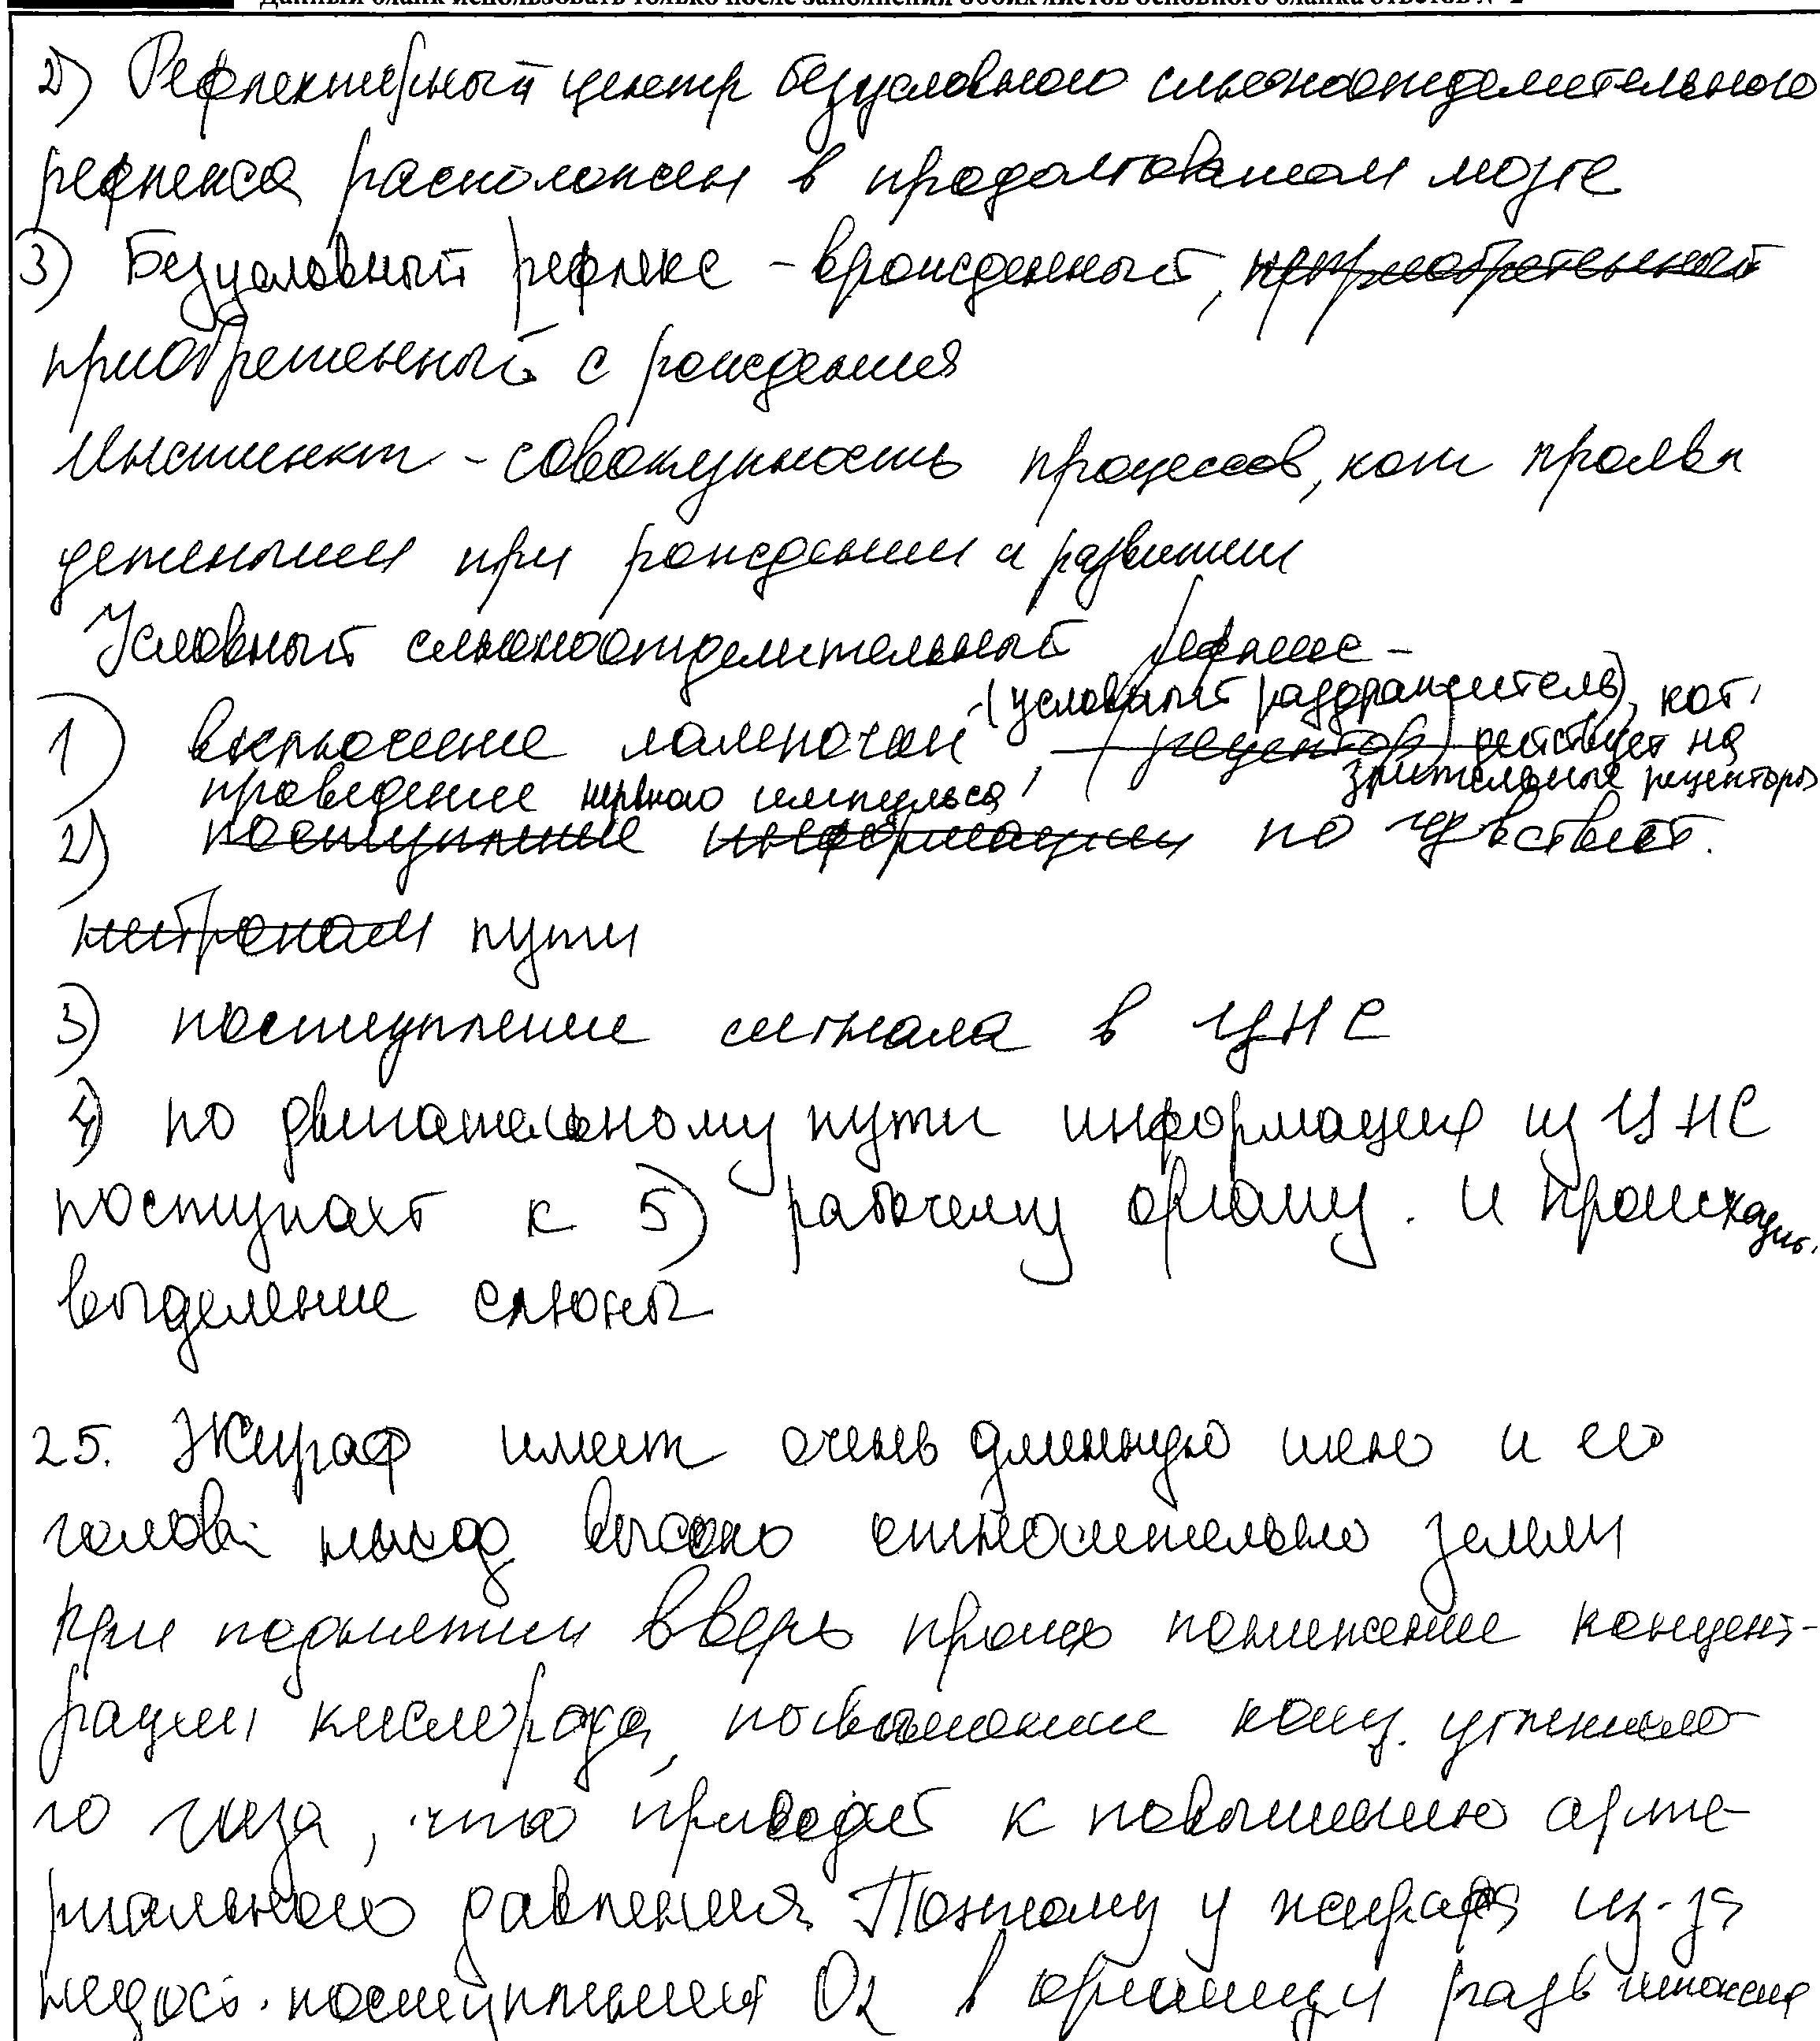 Данный бланк использовать только после заполнения обоих листов основного бланка ответов № 2
2) Рефлекторный центр безусловного слюноотделительного
рефлекса расположен в продолговатом мозге
3) Безусловный рефлекс - врожденный, неприобретенный
приобретенный с рождения
Инстинкт - совокупность процессов, кот проявл
детенышем при рождении и развитии
Условный слюноотделительный рефлекс -
(условный раздражитель), кот.
1) включение лампочки, (рецептор) действует на
зрительные рецепторы
проведение нервного импульса
2) поступление информации по чувствит.
нейронам пути
3) поступление сигнала в ЦНС
4) по двигательному пути информация из ЦНС
поступает к 5) рабочему органу. и происходит.
выделение слюны
25. Жираф имеет очень длинную шею и его
голова наход высоко относительно земли
При поднятии вверх происх понижение концент-
рации кислорода, повышение конц. углекисло-
го газа, что приводит к повышению арте-
риального давления. Поэтому у жирафа из-за
недос. поступления O2 в организм разв гипоксия